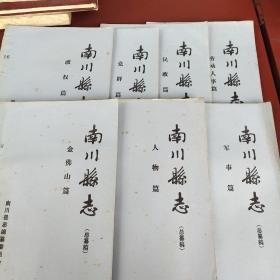 南川縣志
政权篇
南川縣志
党群篇
南川縣志
民政篇
南川縣志
劳动人事篇
南川縣志
(总纂稿)
金佛山篇
南川县志编纂委员
南川縣志
(总纂稿)
人物篇
南川縣志
(总纂稿)
军事篇